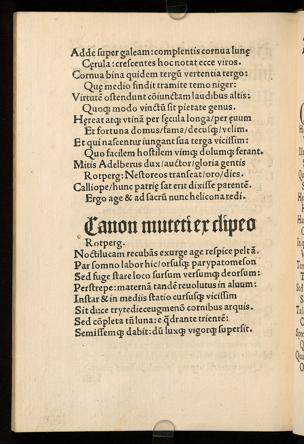 Adde super galeam: complentis cornua lunę
Cęrula: crescentes hoc notat ecce viros.
Cornua bina quidem tergū vertentia tergo:
Quę medio findit tramite temo niger:
Virtutē ostendunt cōiunctam laudibus altis:
Quoqꝫ modo vinctū sit pietate genus.
Hęreat atqꝫ vtinā per sęcula longa/per ęuum
Et fortuna domus/fama/decusqꝫ/velim.
Et qui nascentur iungant sua terga vicissim:
Quo facilem hostilem vimqꝫ dolumqꝫ ferant.
Mitis Adelberus dux/auctor/gloria gentis
Rotperg: Nestoreos transeat/oro/dies.
Calliope/hunc patrię fat erit dixisse parentē.
Ergo age & ad sacrū nunc helicona redi.
Canon muteti ex clipeo
Rotperg.
Noctilucam recubās exurge age respice peltā.
Par somno labor hic/orsulqꝫ parypatomeson
Sed fuge stare loco sursum versumqꝫ deorsum:
Perstrepe: maternā tandē reuolutus in aluum:
Instar & in mediis statio cursusqꝫ vicissim
Sit duce trytedieceugmenō cornibus arquis.
Sed cōpleta tñ luna: e q̄drante trientē:
Semissemqꝫ dabit: dū luxqꝫ vigorqꝫ supersit.